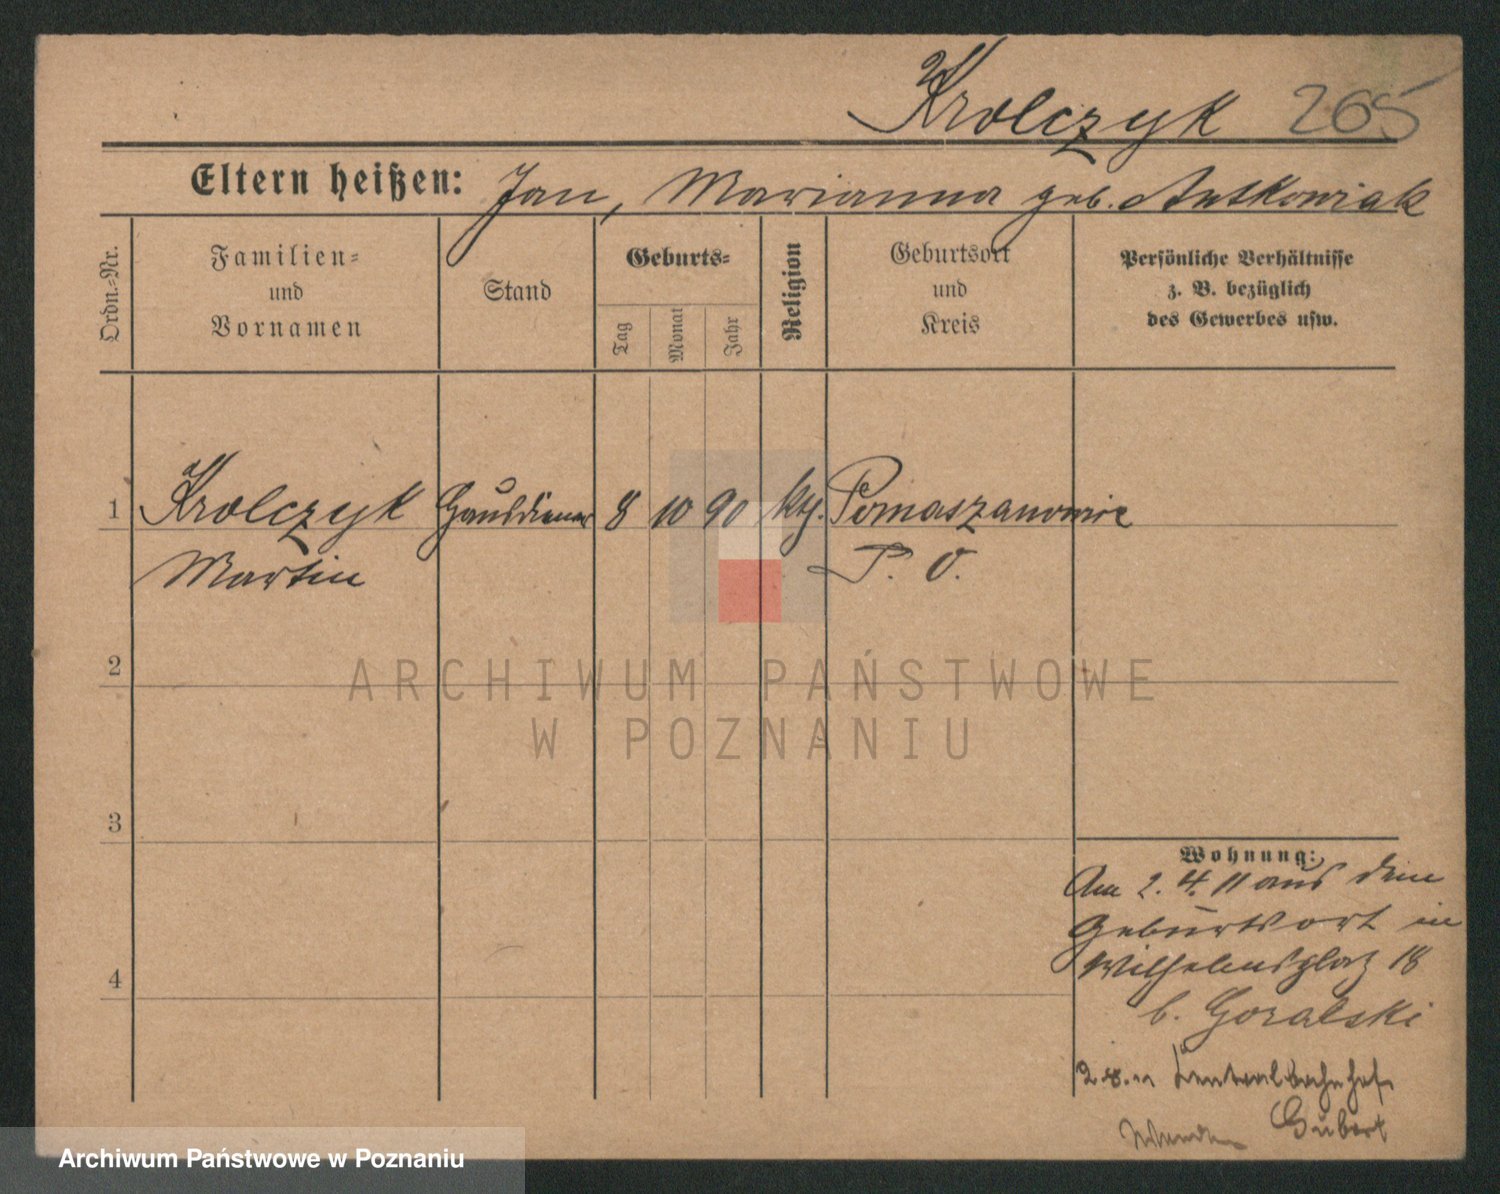 Krolczyk 265
Eltern heißen: Jan, Marianna geb. Antkowiak
Ordn.-Nr.
Familien-
und
Vornamen
Stand
Geburts-
Tag
Monat
Jahr
Religion
Geburtsort
und
Kreis
Persönliche Verhältnisse
z. B. bezüglich
des Gewerbes usw.
1 Krolczyk Hausdiener 8 10 90 kth. Pomaszanowic
Martin P. O.
2
ARCHIWUM PAŃSTWOWE
W POZNANIU
3
4
Wohnung:
Am 2. 4. 11 aus dem
Geburtsort in
Wilhelmsplatz 18
b. Goralski
Centralbahnhof
Archiwum Państwowe w Poznaniu